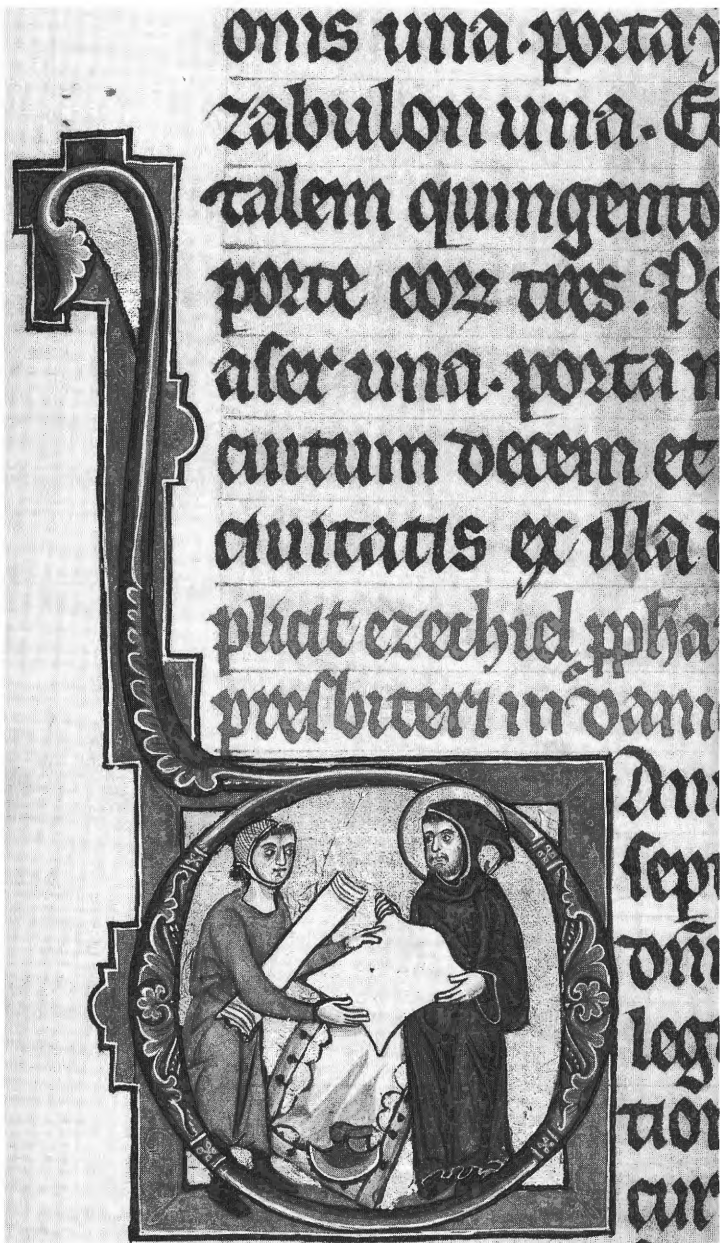 onis una. porta
zabulon una. Et
talem quingento
porte eoꝝ tres. Po
aser una. porta n
cuitum decem et
ciuitatis ex illa d
plicit ezechiel ꝓpha
presbiteri in dani
Ann
sept
dn̄i
leg
tion
cur